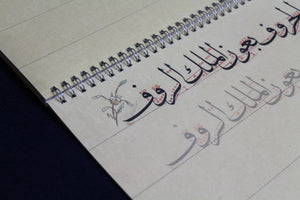 الحروف بعون الملك الرؤف
بعون الملك الرؤف